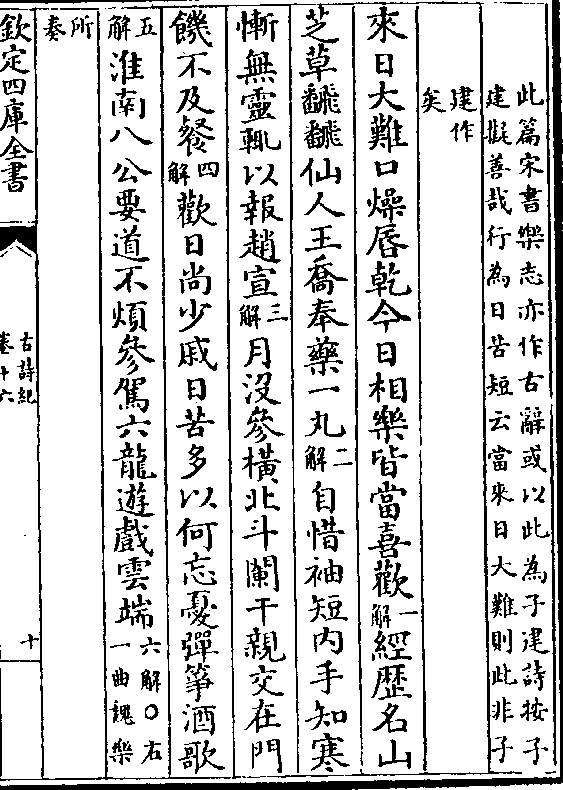 此篇宋書樂志亦作古辭或以此為子建詩按子
建擬善哉行為日苦短云當來日大難則此非子
建作
矣
來日大難口燥唇乾今日相樂皆當喜歡一解經歴名山
芝草飜飜仙人王喬奉藥一丸二解自惜袖短内手知寒
慚無靈輒以報趙宣三解月沒參横北斗闌干親交在門
饑不及餐四解歡日尚少戚日苦多以何忘憂彈箏酒歌
五解淮南八公要道不煩參駕六龍遊戲雲端六解〇右一曲魏樂
所奏
欽定四庫全書
古詩紀
卷十六
十